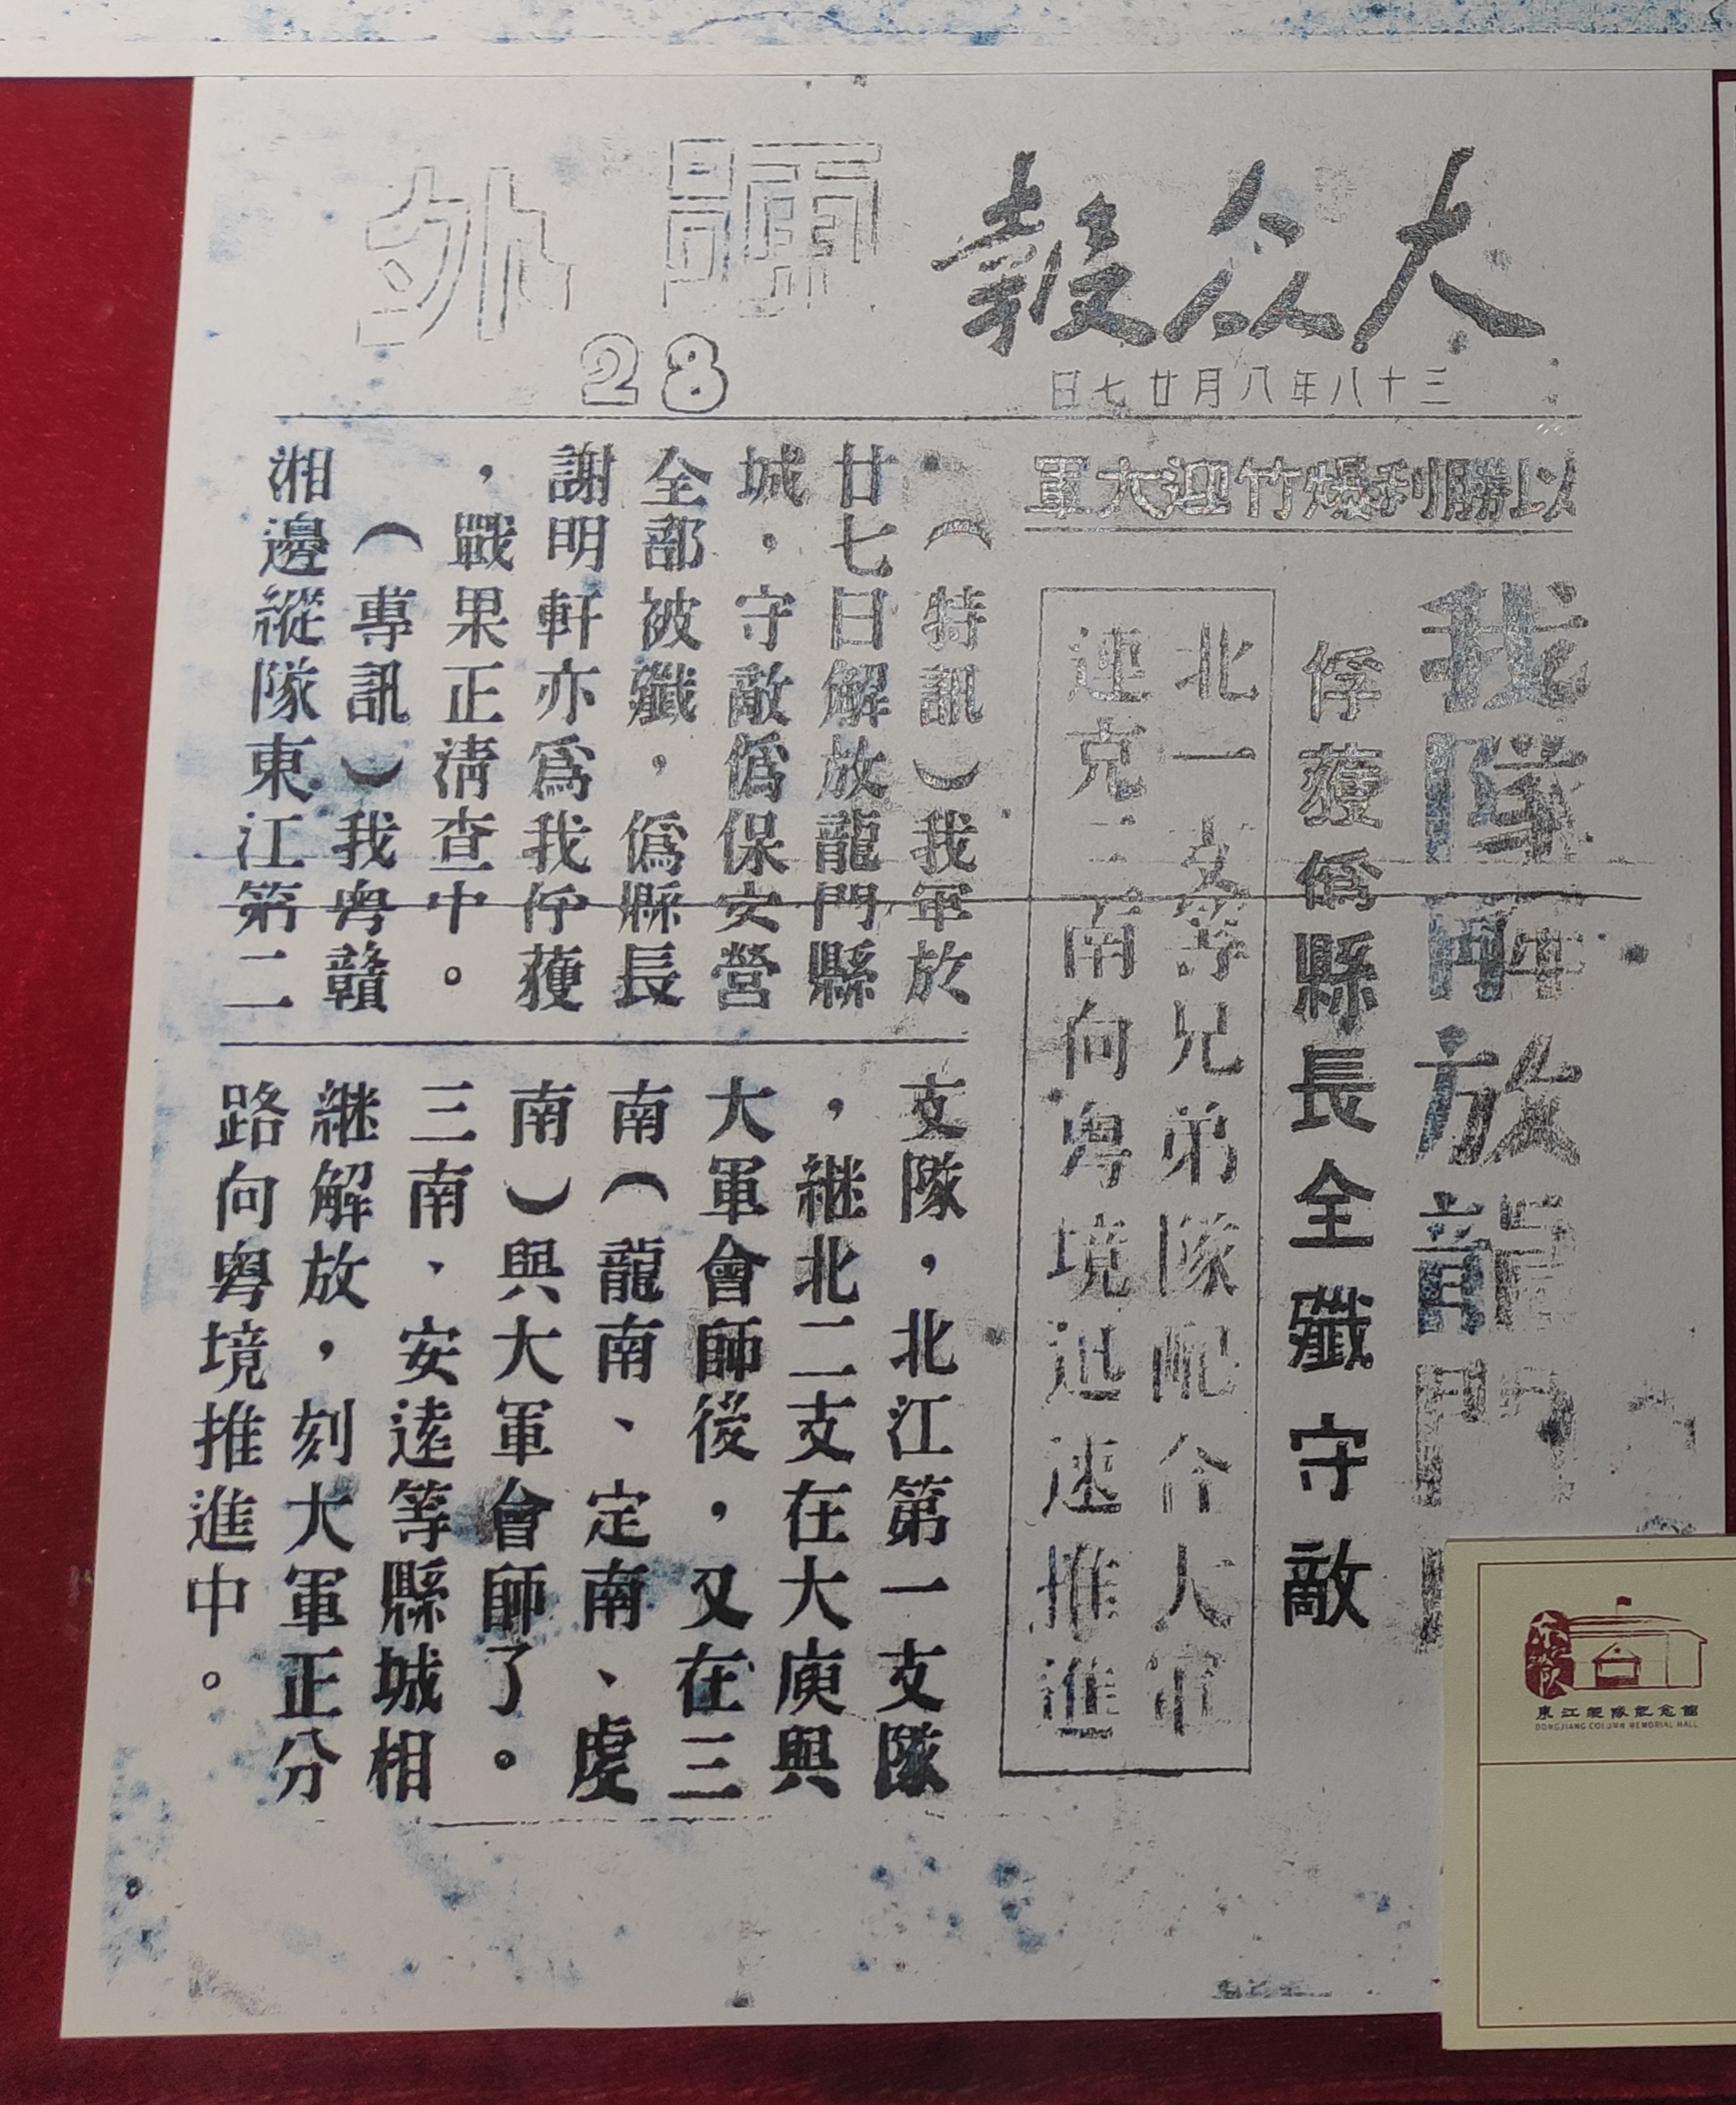 大众報
號外
28
三十八年八月廿七日
以勝利爆竹迎大軍
我隊解放龍門
俘獲僞縣長全殲守敵
北一支等兄弟隊配合大軍
連克三南向粵境迅速推進
（特訊）我軍於
廿七日解放龍門縣
城，守敵僞保安營
全部被殲，僞縣長
謝明軒亦爲我俘獲
，戰果正清查中。
（專訊）我粵贛
湘邊縱隊東江第二
支隊，北江第一支隊
，継北二支在大庾與
大軍會師後，又在三
南（龍南、定南、虔
南）與大軍會師了。
三南、安逺等縣城相
継解放，刻大軍正分
路向粵境推進中。
東江縱隊紀念館
DONGJIANG COLUMN MEMORIAL HALL